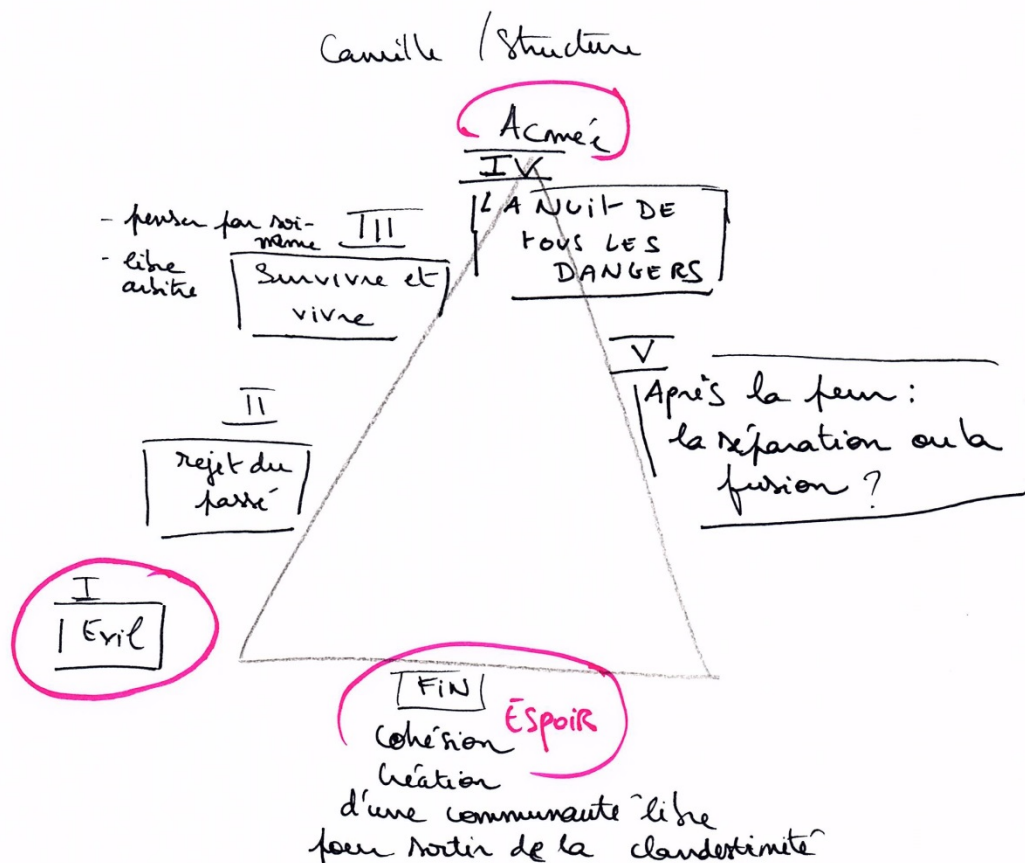 Camille / Structure
Acmée
IV
LA NUIT DE
TOUS LES
DANGERS
III
- penser par soi-
même
- libre
arbitre
Survivre et
vivre
V
Après la peur :
la séparation ou la
fusion ?
II
rejet du
passé
I
Exil
FIN
ESPOIR
cohésion
création
d'une communauté libre
pour sortir de la clandestinité